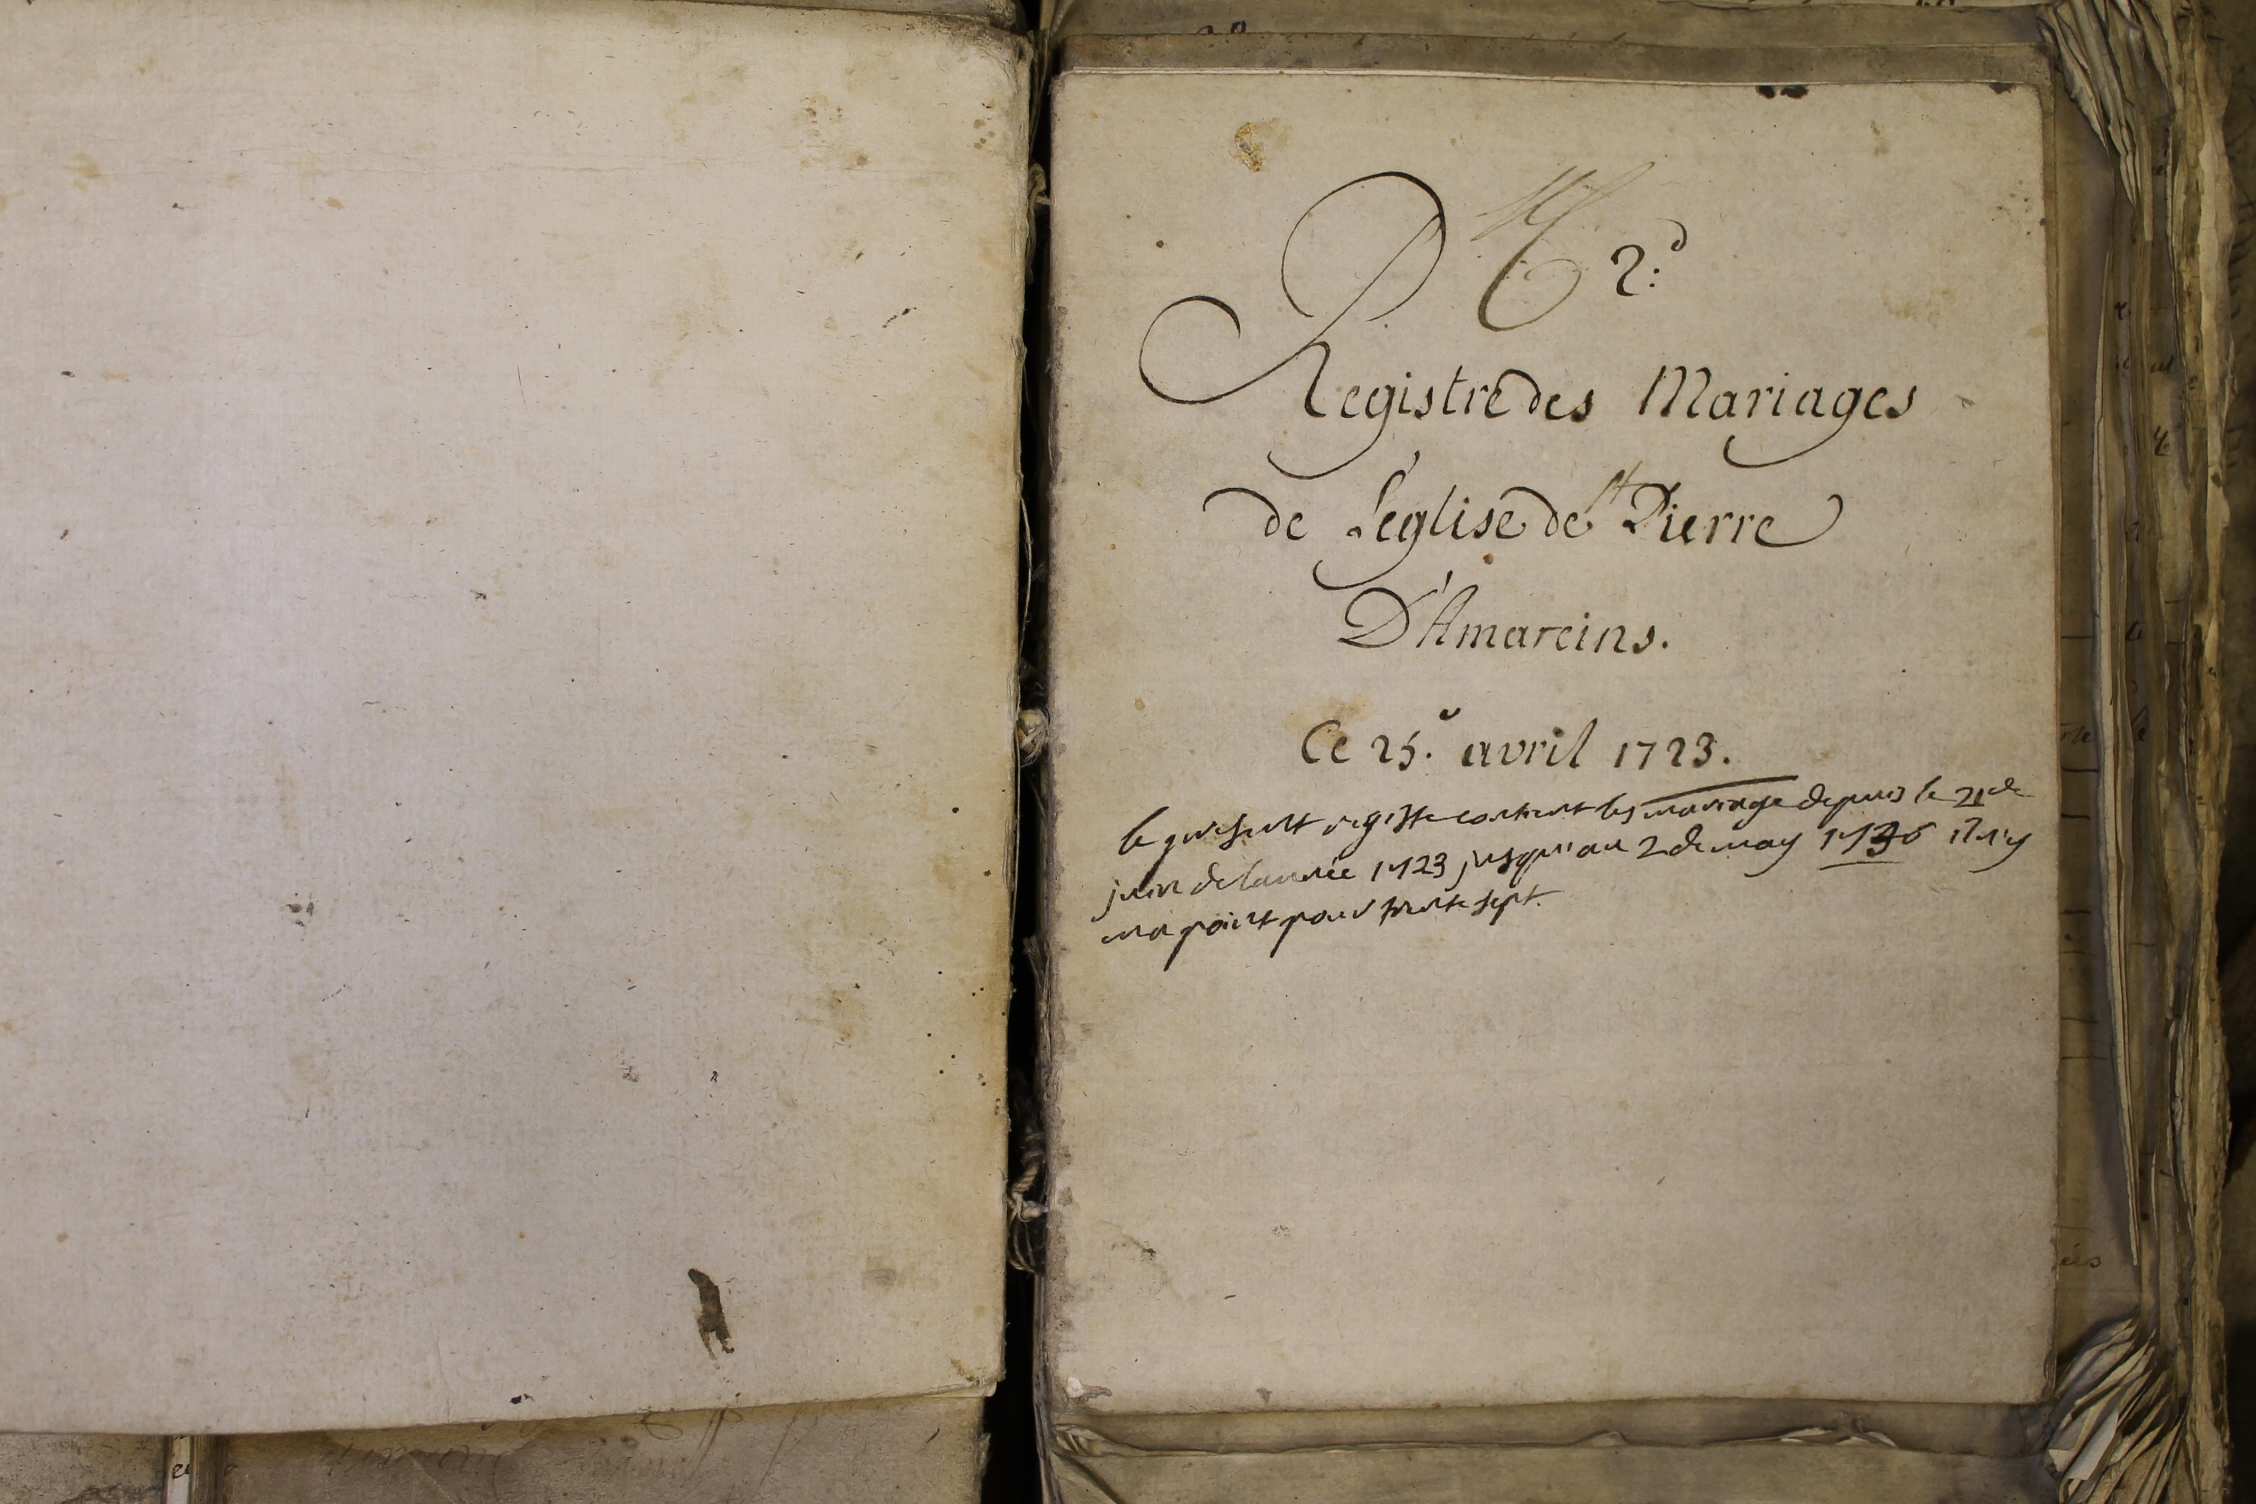 2.d
Registre des Mariages
de L'eglise de St Pierre
D'Amareins.
Ce 25.e avril 1723.
le present registre contient les mariage depuis le 21 de
juin de l'année 1723 jusqu'au 2 de may 1736 il n'y
en a point pour trente sept.